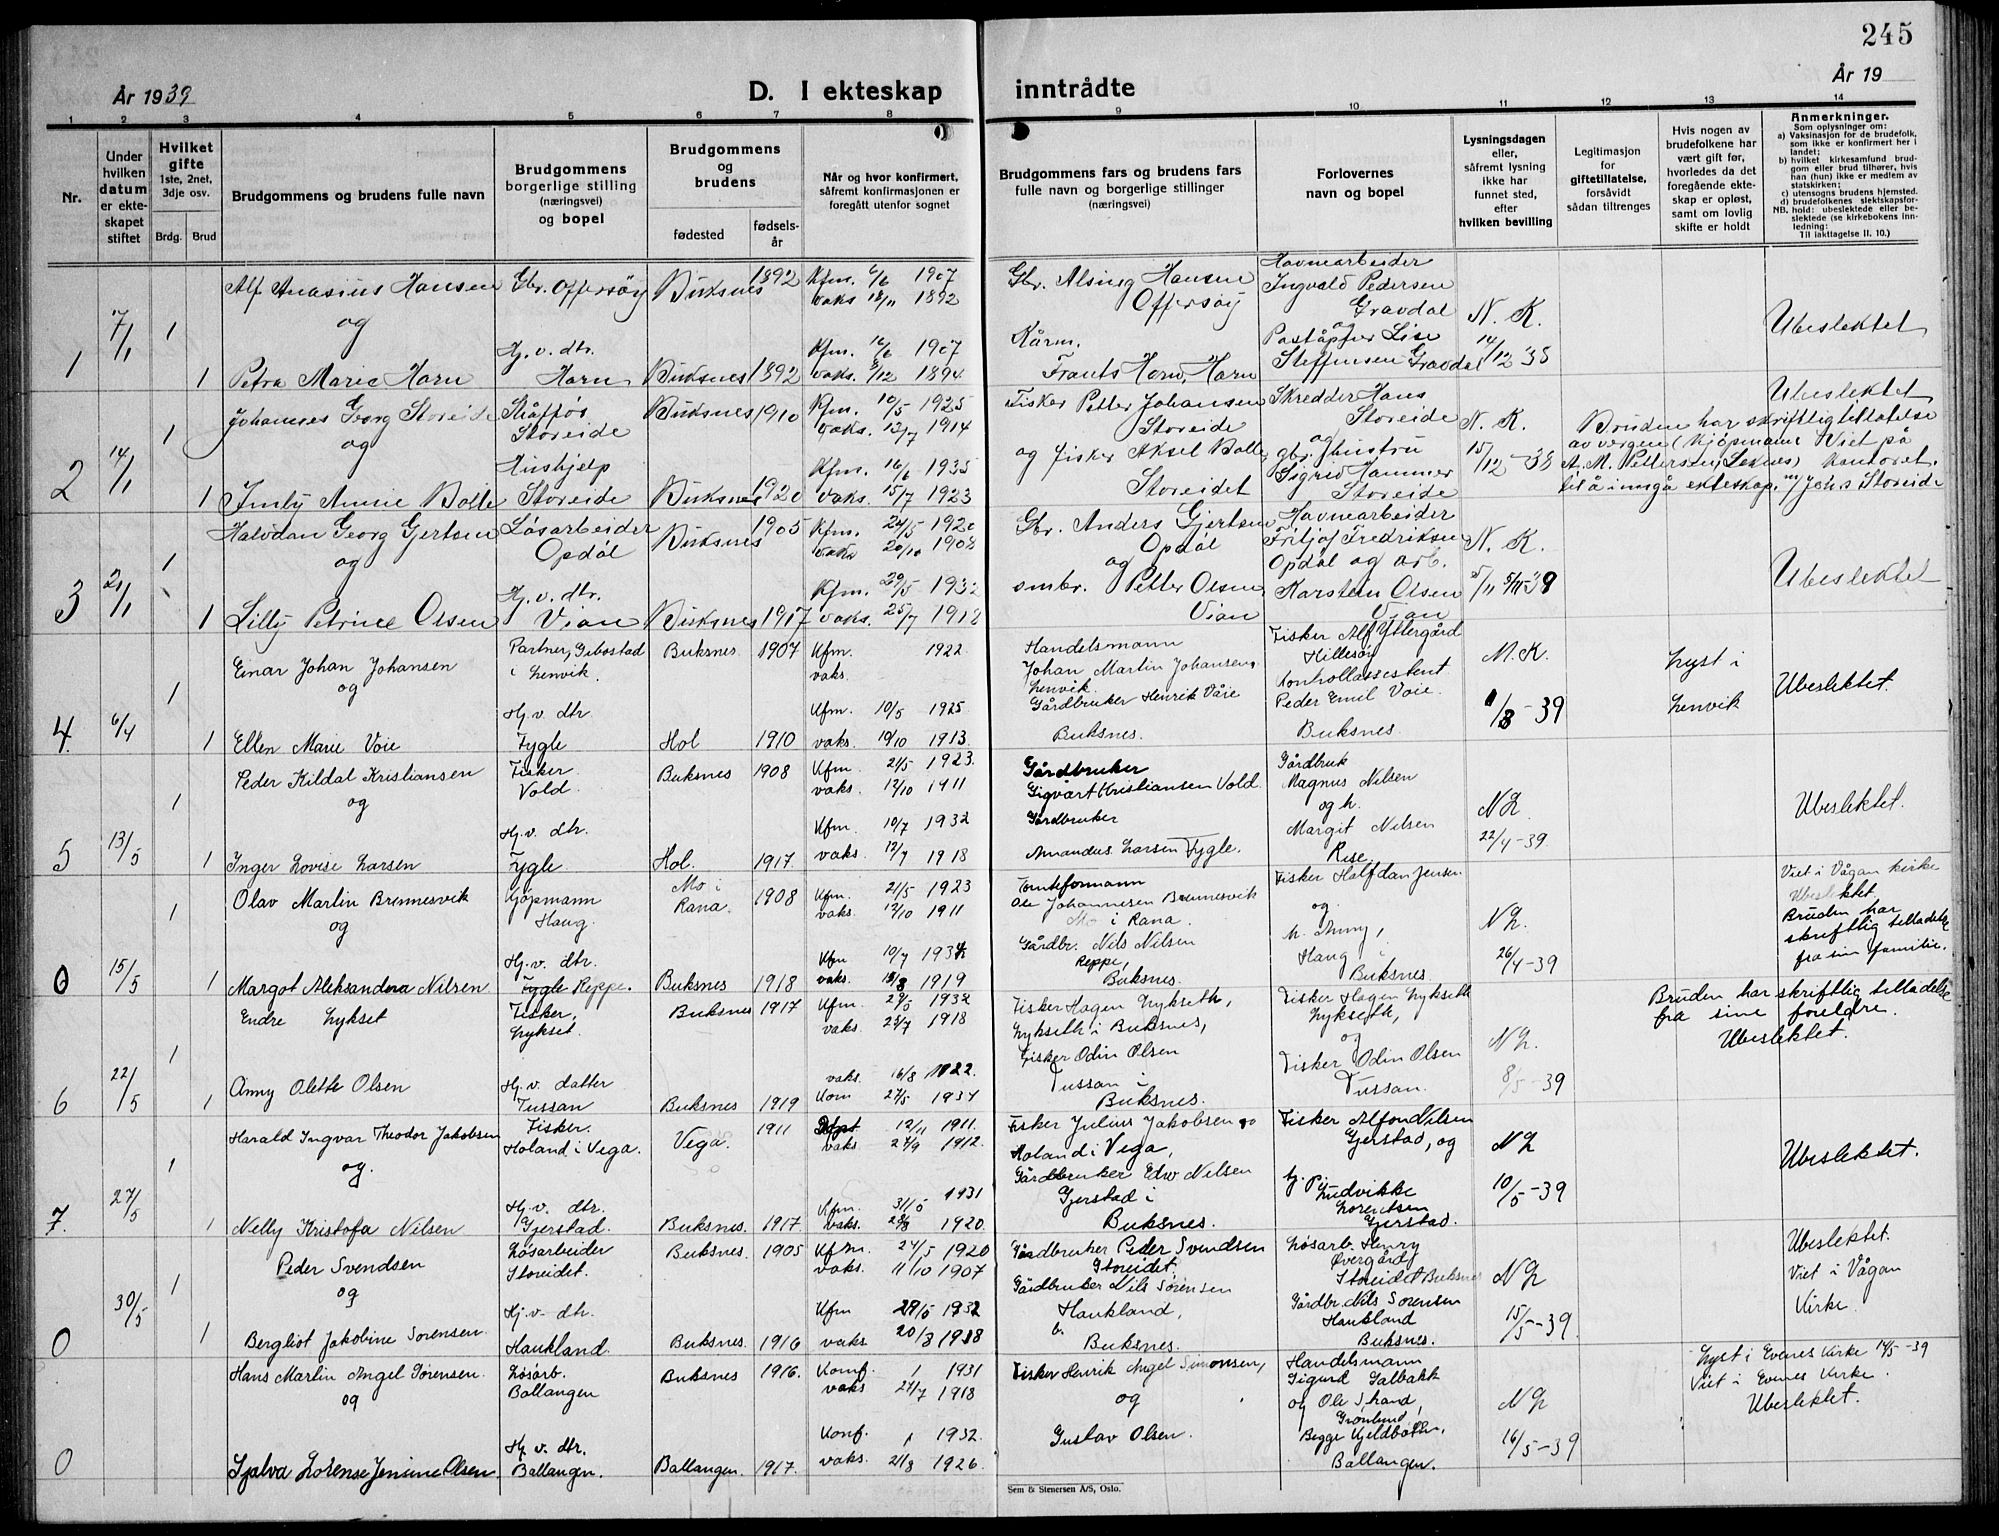 245
År 1939
D. I ekteskap inntrådte
År 19
1 2 3 4 5 6 7 8 9 10 11 12 13 14
Nr.
Under hvilken datum er ekteskapet stiftet
Hvilket gifte 1ste, 2net, 3dje osv.
Brdg. Brud
Brudgommens og brudens fulle navn
Brudgommens borgerlige stilling (næringsvei) og bopel
Brudgommens og brudens
fødested
fødselsår
Når og hvor konfirmert, såfremt konfirmasjonen er foregått utenfor sognet
Brudgommens fars og brudens fars fulle navn og borgerlige stillinger (næringsvei)
Forlovernes navn og bopel
Lysningsdagen eller, såfremt lysning ikke har funnet sted, efter hvilken bevilling
Legitimasjon for giftetillatelse, forsåvidt sådan tiltrenges
Hvis nogen av brudefolkene har vært gift før, hvorledes da det foregående ekteskap er opløst, samt om lovlig skifte er holdt
Anmerkninger.
Som oplysninger om:
a) Vaksinasjon for de brudefolk, som ikke er konfirmert her i landet;
b) hvilket kirkesamfund brudgom eller brud tilhører, hvis han (hun) ikke er medlem av statskirken;
c) utensogns brudens hjemsted.
d) brudefolkenes slektskapsforhold: ubeslektede eller beslektede (se kirkebokens innledning:
NB.
Til iakttagelse II. 10.)
1 7/1 1
Alf Anasius Hansen
Gbr. Offersøy
Buksnes 1892
Kfm. 6/6 1907
vaks 18/11 1892
Gbr. Alsing Hansen
Offersøy
Havnearbeider
Ingvald Pedersen
Gravdal
og
N. K.
14/12 38
Ubeslektet
og
1 Petra Marie Horn
Hj. v. dtr.
Horn
Buksnes 1892
Kfm. 16/6 1907
vaks. 8/12 1894
Kårm.
Frants Horn, Horn
Lise
Steffensen Gravdal
2 14/1 1
Johannes Georg Storeide
Storeide
Buksnes 1910
Kfm. 10/5 1925
vaks. 13/7 1914
Fisker Petter Johansen
Storeide
Skredder Hans
Storeide
og
N. K.
15/12-38
Ubeslektet
Bruden har skriftlig tillatelse
av vergen (Kjøpmann Viet på
A. M. Pettersen, Leknes) kontoret.
til å inngå ekteskap. m/ Johs Storeide
og
1 Imly Annie Bolle
Hushjelp
Storeide
Buksnes 1920
Kfm. 16/6 1935
vaks. 15/7 1923
og fisker Aksel Bolle
Storeidet
gbr. hustru
Sigrid Hammer
Storeide
3 21/1 1
Halvdan Georg Gjertsen
Løsarbeider
Opdøl
Buksnes 1905
Kfm. 24/5 1920
vaks 20/10 1908
Gbr. Anders Gjertsen
Opdøl
og
Havnearbeider
Fritjof Fredriksen
Opdøl og arb.
N. K.
Ubeslektet
og
1 Lilly Petrine Olsen
Hj. v. dtr.
Vian
Buksnes 1917
Kfm. 29/5 1932
vaks. 25/7 1918
smbr. Petter Olsen
Vian
Karsten Olsen
Vian
4. 6/4 1
Einar Johan Johansen
Partner, Gibostad
i Lenvik.
Buksnes 1907
Kfm. 1922
vaks.
Handelsmann
Johan Martin Johansen,
Lenvik.
Fisker Alf Yttergård
Hillesøy
M. K.
1/3-39
Lyst i
Lenvik
Ubeslektet.
og
1 Ellen Marie Voie
Hj. v. dtr
Fygle
Hol 1910
Kfm. 10/5 1925.
vaks. 19/10 1913.
Gårdbruker Henrik Våie
Buksnes.
Kontrollassestent
Peder Emil Voie.
Buksnes
5 13/5 1
Peder Kildal Kristiansen
Fisker
Vold.
Buksnes 1908
Kfm 21/5 1923
vaks. 12/10 1911
Gårdbruker
Sigvart Kristiansen Vold.
Gårdbruk
Magnus Nilsen
og h.
NL
22/4-39
Ubeslektet.
og
1 Inger Lovise Larsen
Hj. v. dtr.
Fygle
Hol. 1917.
Kfm. 10/7 1932
vaks. 12/7 1918
Gårdbruker
Amandus Larsen Fygle.
Margit Nilsen
Rise.
0 15/5 1
Olav Martin Brennesvik
Kjøpmann
Haug.
Mo i
Rana. 1908
Kfm. 21/5 1923
vaks. 12/10 1911
Tomteformann
Ole Johannesen Brennesvik
Mo i Rana.
Fisker Halfdan Jensen
og
NL.
26/4-39
Viet i Vågan kirke
Ubeslektet
Bruden har
skriftlig tilladelse
fra sin familie.
og
1 Margot Aleksandera Nilsen
Hj. v. dtr.
Fygle Reppe.
Buksnes 1918
Kfm 10/7 1932
vaks. 1919
Gårdbr. Nils Nilsen
Reppe,
Buksnes.
Haug i
Buksnes.
6 22/5 1
Endre Lykset
Fisker,
Lykset.
Buksnes 1917
Kfm. 29/5 1932
vaks. 23/7 1918
Fisker Hagen Lykseth,
Lykseth i Buksnes,
Fisker Hagen Lykseth
Lykseth,
og
NL.
8/5-39
Bruden har skriftlig tilladelse
fra sine foreldre.
Ubeslektet.
1 Anny Olette Olsen
Hj. v. datter
Tussan
Buksnes 1919
vaks. 16/8 1922.
Kom 27/5 1934
Fisker Odin Olsen
Tussan i
Buksnes.
Fisker Odin Olsen
Tussan.
7. 27/5 1
Harald Ingvar Theodor Jakobsen
Fisker.
Holand i Vega.
Vega. 1911
12/11 1911.
vaks. 27/9 1912.
Fisker Julius Jakobsen
Holand i Vega,
Fisker Alfon Nilsen
Gjerstad, og
NL
10/5-39
Ubeslektet.
og.
1 Nelly Kristofa Nilsen
Hj. v. dtr.
Gjerstad.
Buksnes. 1917.
Kfm. 31/5 1931
vaks. 1920.
Gårdbruker Edw Nilsen
Gjerstad i
Buksnes.
Ludvikke
Lorentsen
Gjerstad.
0 30/5 1
Peder Svendsen
Løsarbeider
Storeidet.
Buksnes. 1905
Kfm. 24/5 1920
vaks. 11/10 1907
Gårdbruker Peder Svendsen
Storeidet,
Løsarb. Henry
Øvergård
Storeidet Buksnes
NL
15/5-39.
Ubeslektet.
Viet i Vågan
Kirke.
og
1 Bergliot Jakobine Sørensen
Hj. v. dtr.
Haukland.
Buksnes. 1916
Kfm 29/5 1932
vaks 20/8 1918
Gårdbruker Nils Sørensen
Haukland,
Buksnes.
Gårdbr. Nils Sørensen
Haukland
Buksnes.
0
Hans Martin Angel Sørensen.
Løsarb.
Ballangen
Buksnes 1916.
Konf. 1931
vaks 24/7 1918
Fisker Henrik Angel Simonsen,
og
Handelsmann
Sigurd Galbakk
og Ole Strand,
Grønlund
NL
16/5-39
Lyst i Evenes Kirke 14/5-39
Viet i Evenes Kirke.
Ubeslektet.
og
Sjalva Lorense Jensine Olsen
Hj. v. dtr.
Ballangen.
Ballangen. 1917.
Konf. 1932.
vaks. 21/3 1926.
Gustav Olsen.
Begge Kjeldbotn,
Ballangen.
Sem & Stenersen A/S, Oslo.